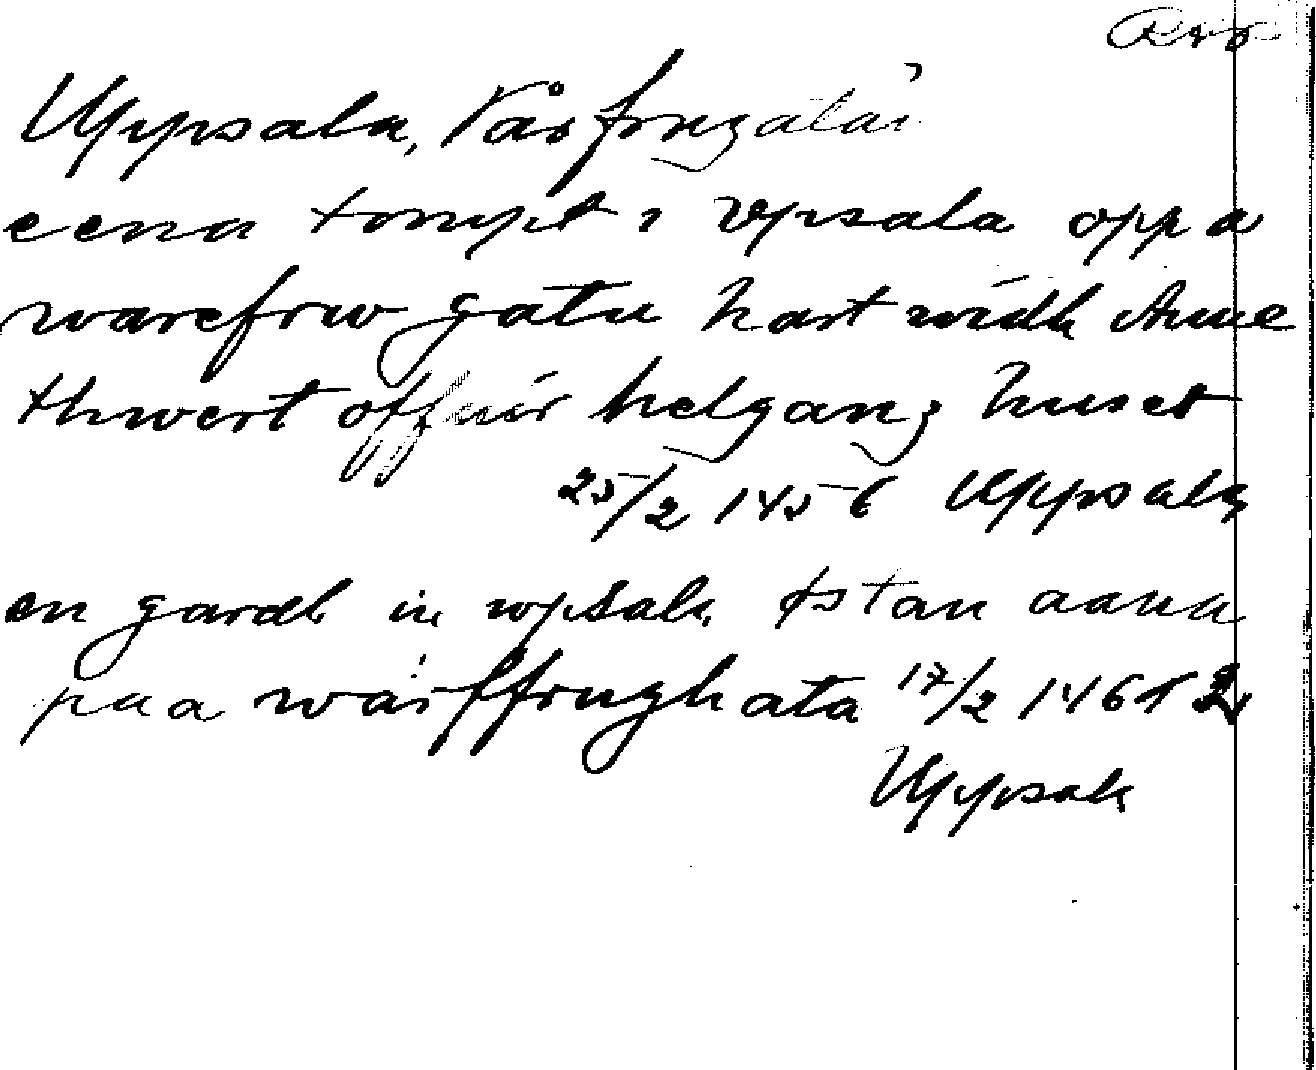 Uppsala, Vårfrugatan
eena tompt i Vpsala opp a
warefrw gatu hart widh
thwert offuir helganz huset
25/2 1456 Uppsala
en gardh in wpsala østan aana
paa wårffrughata 17/2 1461
Uppsala